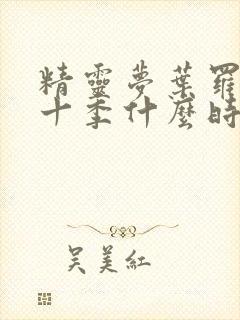 精靈夢葉羅
十季什麼時
吳美紅